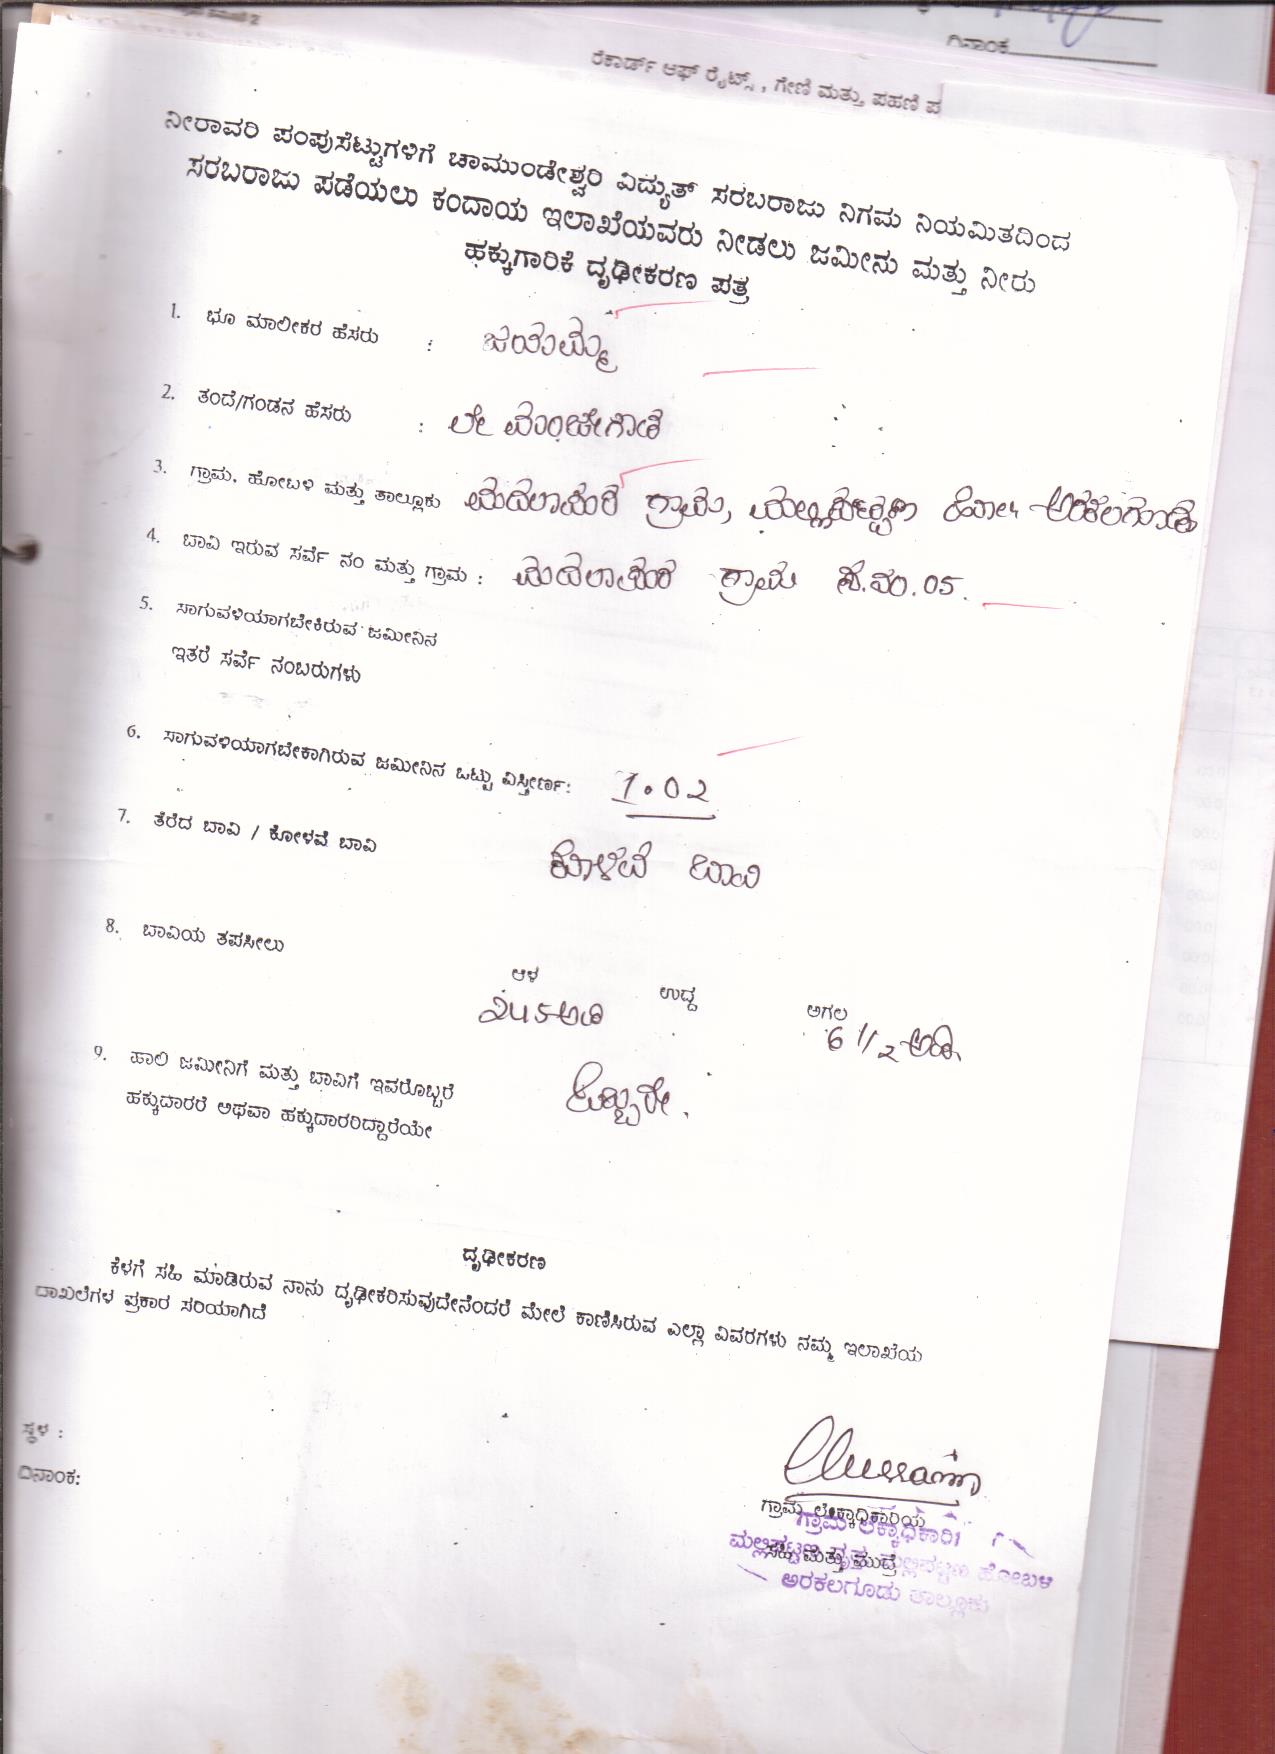 ದಿನಾಂಕ
ರೆಕಾರ್ಡ್ ಆಫ್ ರೈಟ್ಸ್, ಗೇಣಿ ಮತ್ತು ಪಹಣಿ ಪ
ನೀರಾವರಿ ಪಂಪುಸೆಟ್ಟುಗಳಿಗೆ ಚಾಮುಂಡೇಶ್ವರಿ ವಿದ್ಯುತ್ ಸರಬರಾಜು ನಿಗಮ ನಿಯಮಿತದಿಂದ
ಸರಬರಾಜು ಪಡೆಯಲು ಕಂದಾಯ ಇಲಾಖೆಯವರು ನೀಡಲು ಜಮೀನು ಮತ್ತು ನೀರು
ಹಕ್ಕುಗಾರಿಕೆ ದೃಢೀಕರಣ ಪತ್ರ
1. ಭೂ ಮಾಲೀಕರ ಹೆಸರು : ಜಯಮ್ಮ
2. ತಂದೆ/ಗಂಡನ ಹೆಸರು : ಲೇ ಮಂಚೇಗೌಡ
3. ಗ್ರಾಮ. ಹೋಬಳಿ ಮತ್ತು ತಾಲ್ಲೂಕು ಗ್ರಾಮ, ಮಲ್ಲಿಪಟ್ಟಣ ಹೋ॥ ಅರಕಲಗೂಡು
4. ಬಾವಿ ಇರುವ ಸರ್ವೆ ನಂ ಮತ್ತು ಗ್ರಾಮ : ಗ್ರಾಮ ಸ.ನಂ. 05.
5. ಸಾಗುವಳಿಯಾಗಬೇಕಿರುವ ಜಮೀನಿನ
ಇತರೆ ಸರ್ವೆ ನಂಬರುಗಳು
6. ಸಾಗುವಳಿಯಾಗಬೇಕಾಗಿರುವ ಜಮೀನಿನ ಒಟ್ಟು ವಿಸ್ತೀರ್ಣ: 1.02
7. ತೆರೆದ ಬಾವಿ / ಕೋಳವೆ ಬಾವಿ ಕೊಳವೆ ಬಾವಿ
8. ಬಾವಿಯ ತಪಸೀಲು
ಆಳ ಉದ್ದ ಅಗಲ
245 ಅಡಿ 6 1/2 ಅಡಿ
9. ಹಾಲಿ ಜಮೀನಿಗೆ ಮತ್ತು ಬಾವಿಗೆ ಇವರೊಬ್ಬರೆ ಒಬ್ಬರೇ.
ಹಕ್ಕುದಾರರೆ ಅಥವಾ ಹಕ್ಕುದಾರರಿದ್ದಾರೆಯೇ
ದೃಢೀಕರಣ
ಕೆಳಗೆ ಸಹಿ ಮಾಡಿರುವ ನಾನು ದೃಢೀಕರಿಸುವುದೇನೆಂದರೆ ಮೇಲೆ ಕಾಣಿಸಿರುವ ಎಲ್ಲಾ ವಿವರಗಳು ನಮ್ಮ ಇಲಾಖೆಯ
ದಾಖಲೆಗಳ ಪ್ರಕಾರ ಸರಿಯಾಗಿದೆ
ಸ್ಥಳ :
ದಿನಾಂಕ:
ಗ್ರಾಮ ಲೆಕ್ಕಾಧಿಕಾರಿಯ
ಗ್ರಾಮ ಲೆಕ್ಕಾಧಿಕಾರಿ
ಸಹಿ ಮತ್ತು ಮುದ್ರೆ
ಮಲ್ಲಿಪಟ್ಟಣ ವೃತ್ತ ಮಲ್ಲಿಪಟ್ಟಣ ಹೋಬಳಿ
ಅರಕಲಗೂಡು ತಾಲ್ಲೂಕು